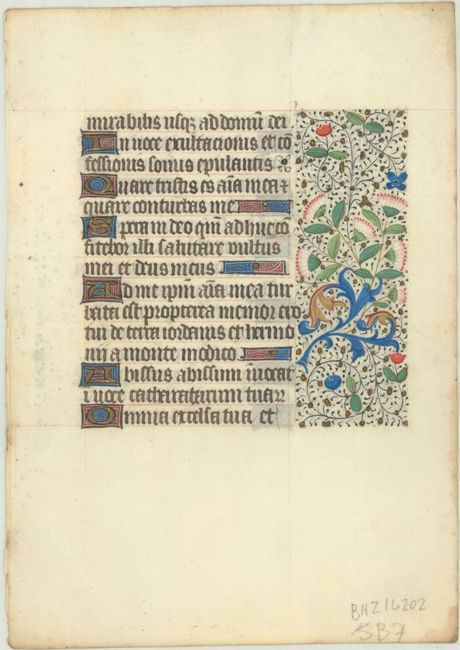 mirabilis usq; ad domū dei
In uoce exultacionis et cō
fessionis sonus epulantis
Quare tristis es aīa mea ⁊
quare conturbas me
Spera in deo qm̄ adhuc cō
fitebor illi salutare uultus
mei et deus meus
Ad me ipm̄ aīa mea tur
bata est propterea memor ero
tui de terra iordanis et hermo
nij a monte modico
Abissus abissum inuocat
i uoce catharatarum tuaꝝ
Omnia excelsa tua et
BHZ16202
SB7